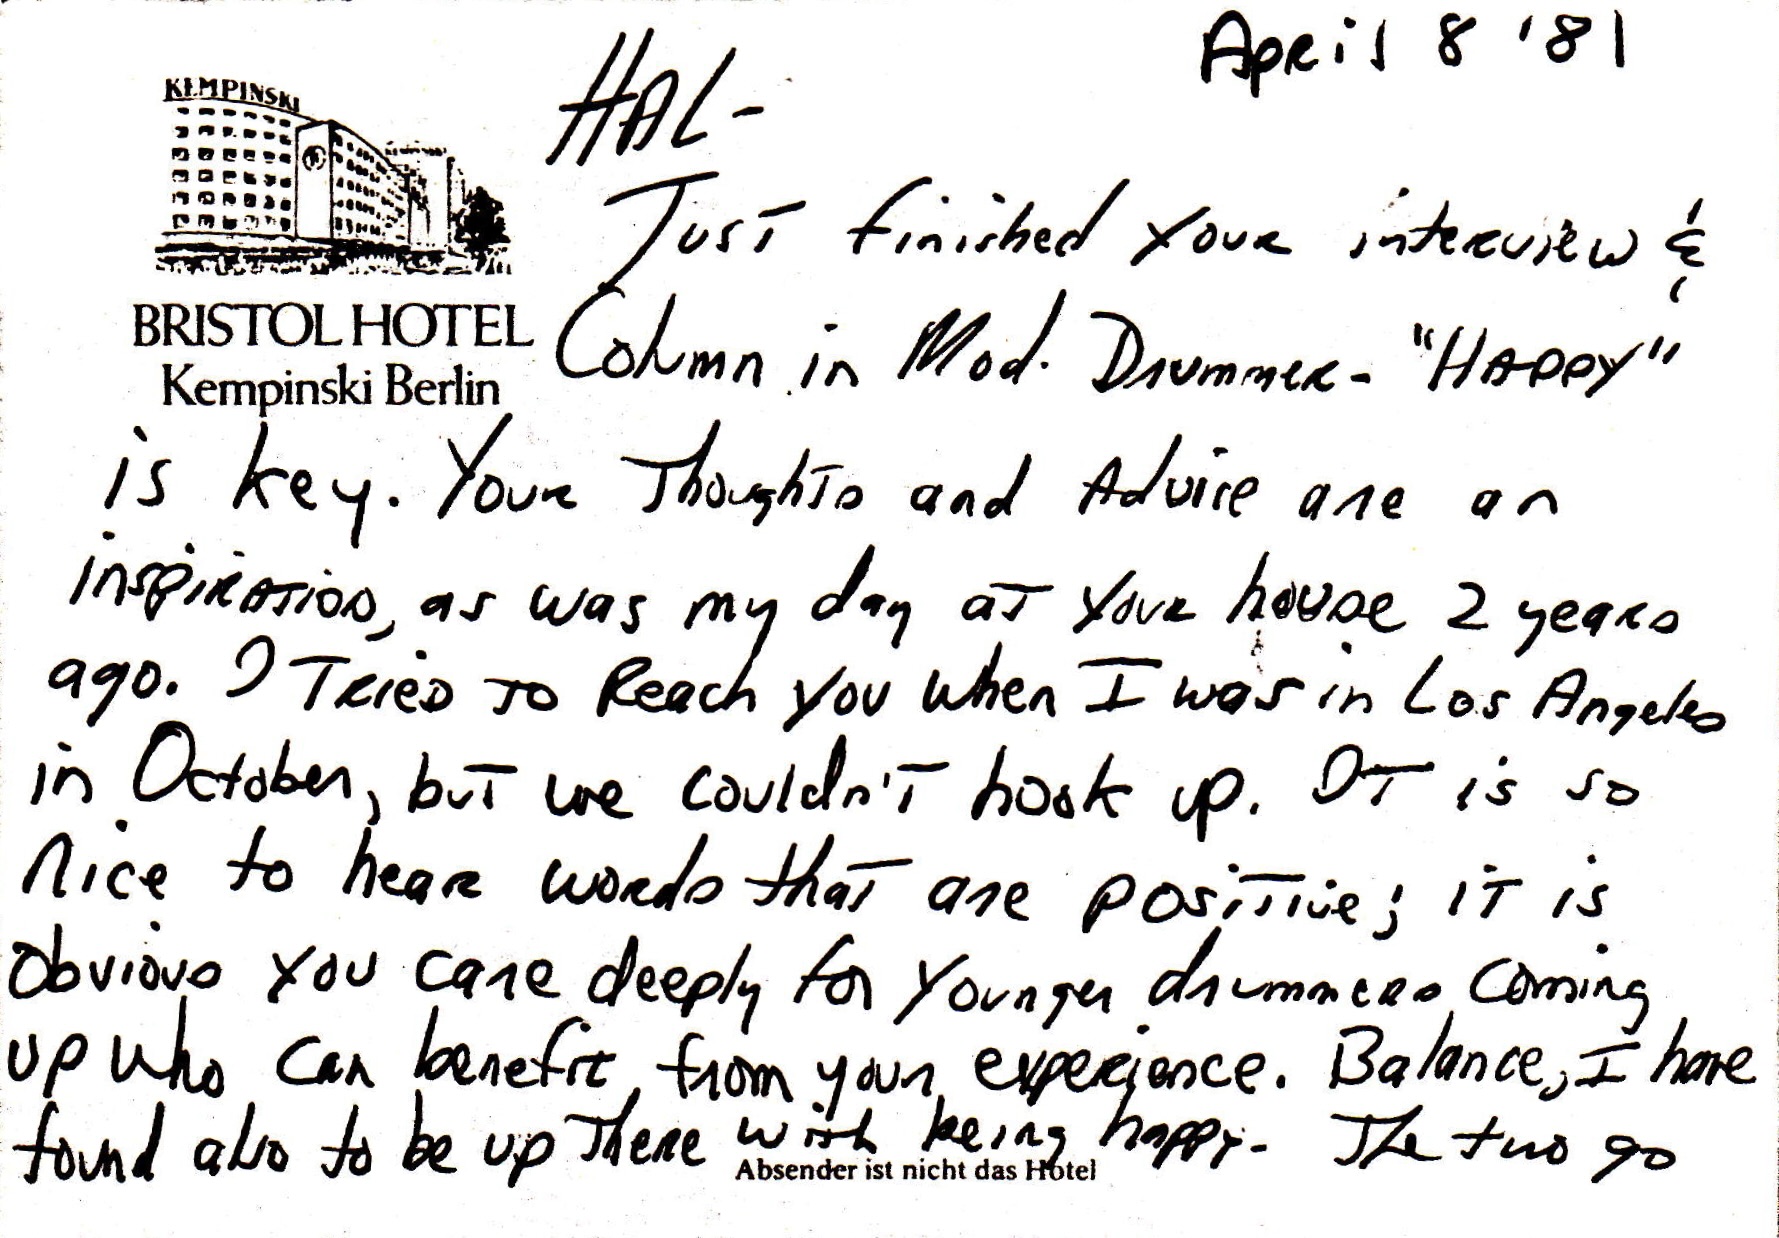 April 8 '81
KEMPINSKI
HAL-
Just finished your interview &
BRISTOL HOTEL
Kempinski Berlin
Column in Mod. Drummer - "HAPPY"
is key. Your Thoughts and Advice are an
inspiration, as was my day at your house 2 years
ago. I Tried to Reach you when I was in Los Angeles
in October, but we couldn't hook up. It is so
nice to hear words that are positive; it is
obvious you care deeply for younger drummers coming
up who can benefit from your experience. Balance, I have
found also to be up there with being happy - The two go
Absender ist nicht das Hotel